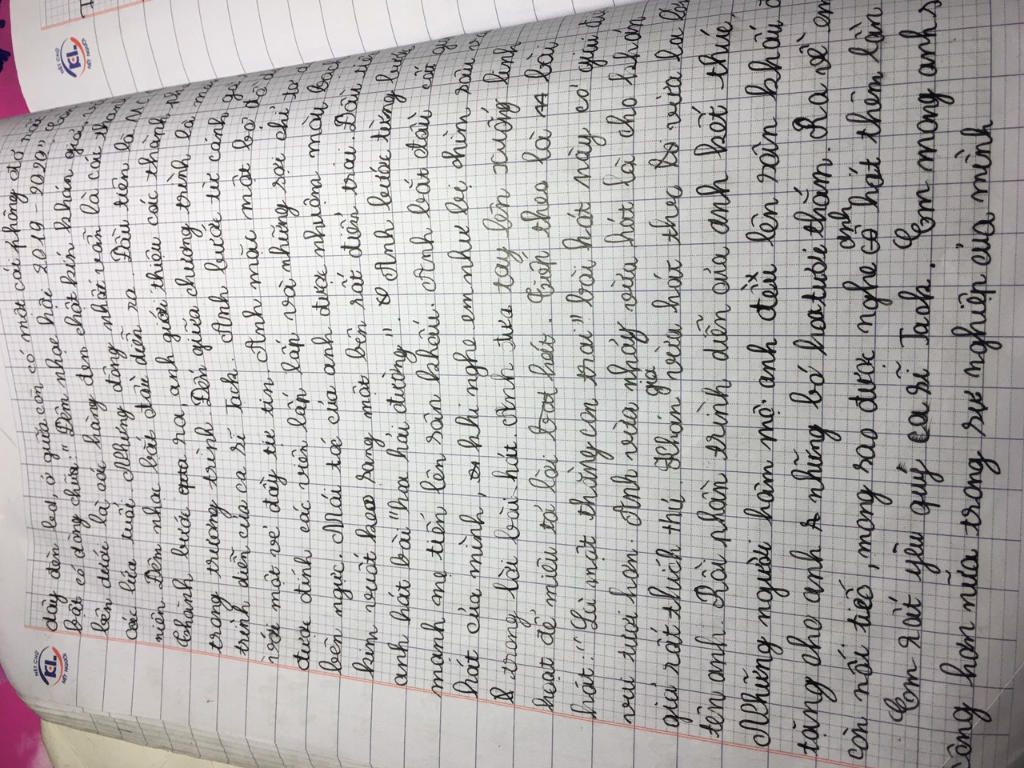 dây đèn led, ở giữa còn có một cái phông chữ
bạt có dòng chữa: "Đêm nhạc hội 2019 - 2020"
bên dưới là các hàng đen chật kín khán giả,
các lứa tuổi nhưng đông nhất vẫn là các
nên Đêm nhạc bắt đầu diễn ra. Đầu tiên là
Chành bước ra, anh giới thiệu cái thành
trong trương trình. Đến giữa chương trình là
trình diễn của ca sĩ Jack. Anh bước từ cánh gà
với một vẻ đầy tự tin Anh mặc một bộ đồ
được đính các viên lấp lấp và những sợi chỉ
bên ngực. Mái tóc của anh được nhuộm màu
kim vuốt sang một bên rất điển trai. Đầu tiên
anh hát bài "hoa hải đường". Anh bước từng bước
mạnh mẹ tiến lên sân khấu Anh bắt đầu cất
hát của mình, khi nghe em như bị chìm sâu
trong lời bài hát Anh đưa tay lên xuống linh
hoạt để miêu tả lời bài hát. Tiếp theo là bài
hát "Là một thằng con trai" bài hát này có giai
vui tươi hơn. Anh vừa nhảy vừa hát là cho khán
giả rất thích thú. Khán giả vừa hát theo vừa
tên anh. Rồi phần trình diễn của anh hết thúc,
Những người hâm mộ anh đều lên sân khấu
tặng cho anh những bó hoa tươi thắm. Ra về em
còn nối tiếc, mong sao được nghe anh hát thêm lần
Em rất yêu quý ca sĩ Jack. Em mong anh
công hơn nữa trong sự nghiệp của mình